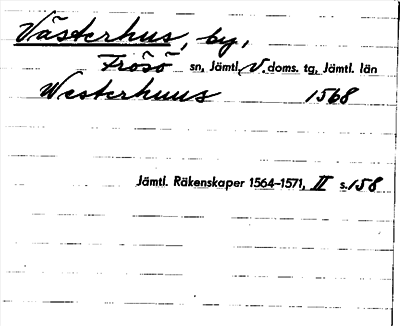 Västerhus, by,
Frösö sn, Jämtl. V. doms. tg, Jämtl. län
Westerhuus 1568
Jämtl. Räkenskaper 1564–1571, II s. 158